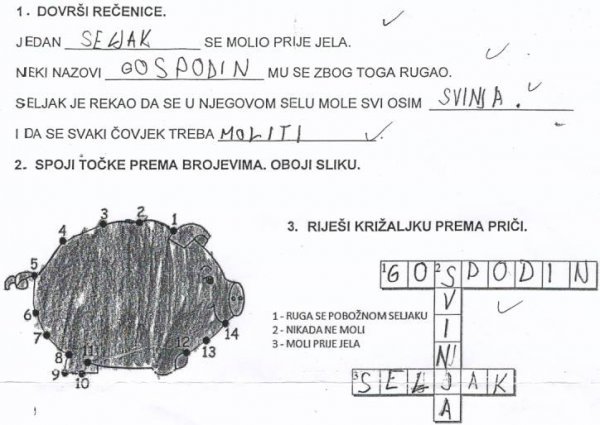 1. DOVRŠI REČENICE.
JEDAN SELJAK SE MOLIO PRIJE JELA.
NEKI NAZOVI GOSPODIN MU SE ZBOG TOGA RUGAO.
SELJAK JE REKAO DA SE U NJEGOVOM SELU MOLE SVI OSIM SVINJA.
I DA SE SVAKI ČOVJEK TREBA MOLITI.
2. SPOJI TOČKE PREMA BROJEVIMA. OBOJI SLIKU.
1
2
3
4
5
6
7
8
9
10
11
12
13
14
3. RIJEŠI KRIŽALJKU PREMA PRIČI.
1 - RUGA SE POBOŽNOM SELJAKU
2 - NIKADA NE MOLI
3 - MOLI PRIJE JELA
1 GO 2 SPODIN
SVINJA
3 SELJAK